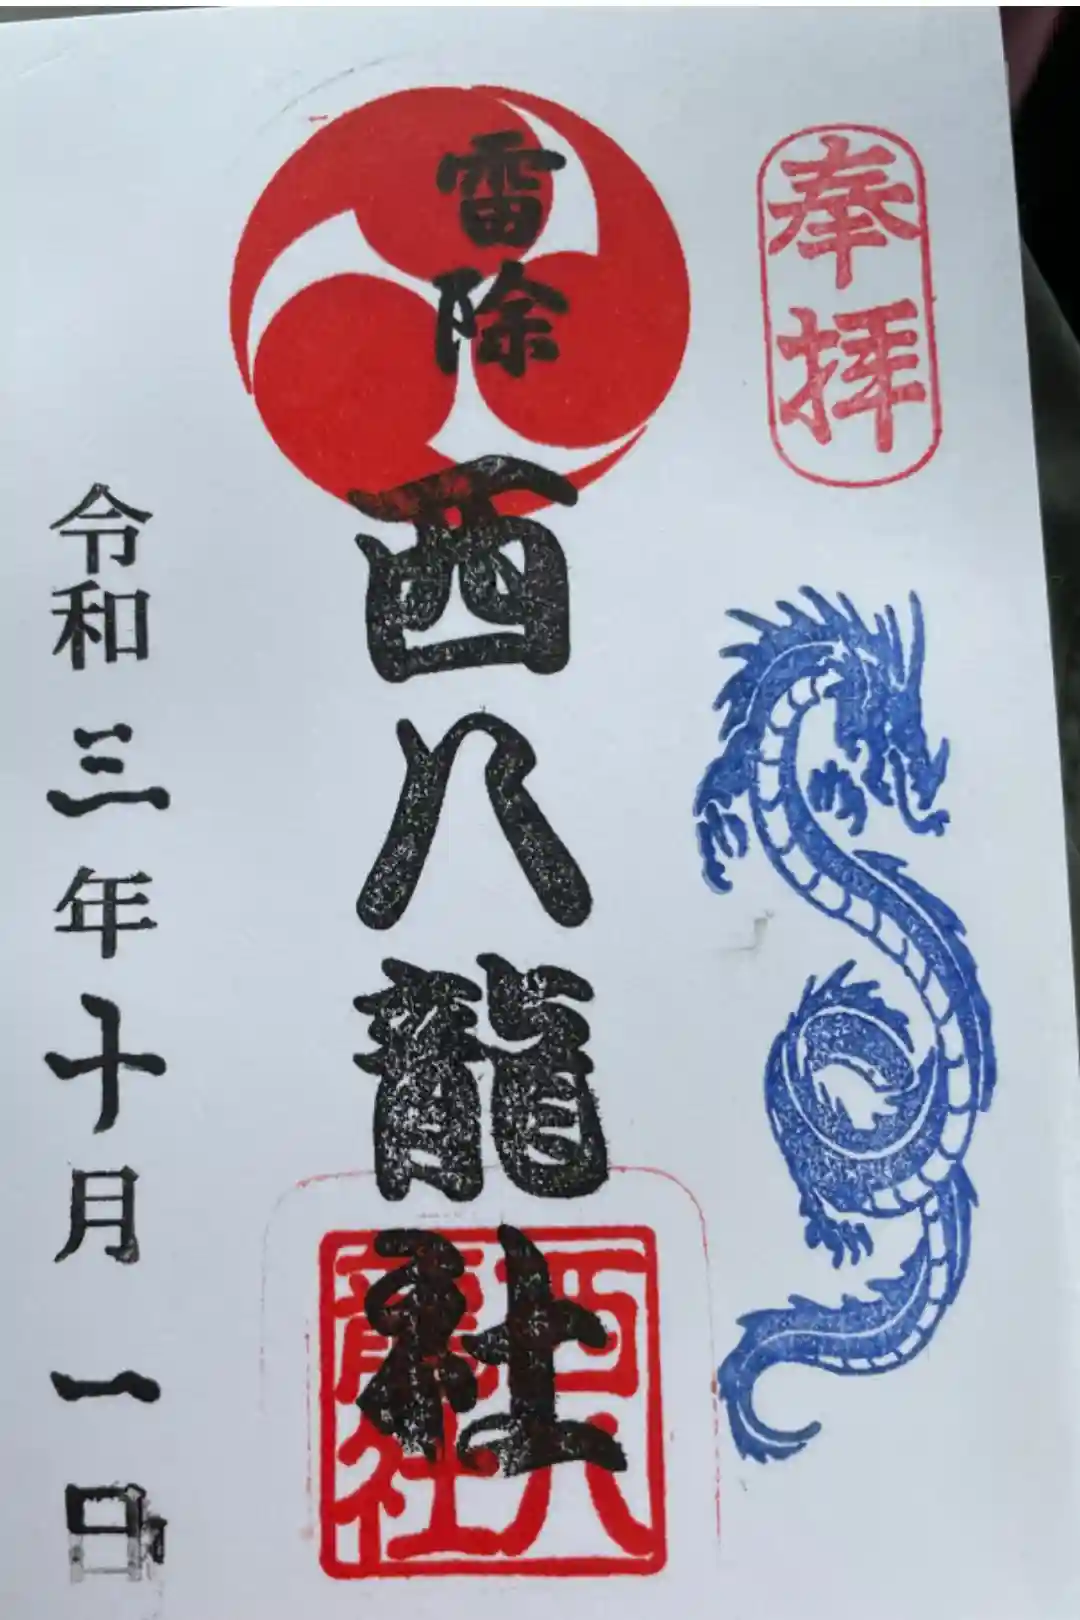 奉拝
雷除
西八龍社
西八
龍社
令和三年十月一日